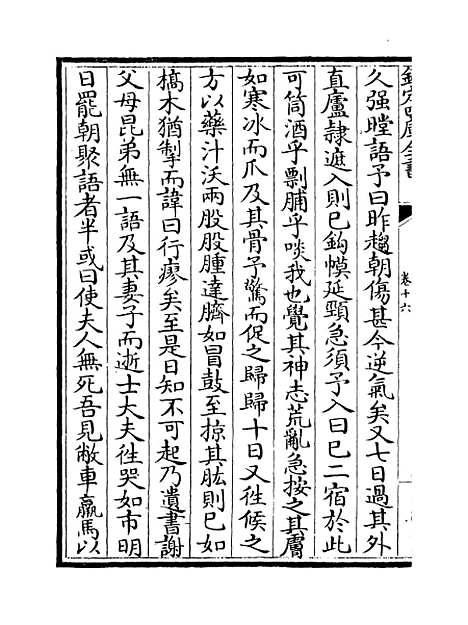 欽定四庫全書
卷十六
久强瞠語予曰昨趨朝傷甚今逆氣矣又七日過其外
直廬隷遮入則已鈎幙延頸急須予入曰已二宿於此
可筒酒乎剽脯乎啖我也覺其神志荒亂急按之其膚
如寒冰而爪及其骨予驚而促之歸歸十日又徃候之
方以藥汁沃兩股股腫達臍如冒鼓至掠其肱則已如
槁木猶掣而諱曰行瘳矣至是日知不可起乃遺書謝
父母昆弟無一語及其妻子而逝士大夫徃哭如市明
日罷朝聚語者半或曰使夫人無死吾見敝車羸馬以